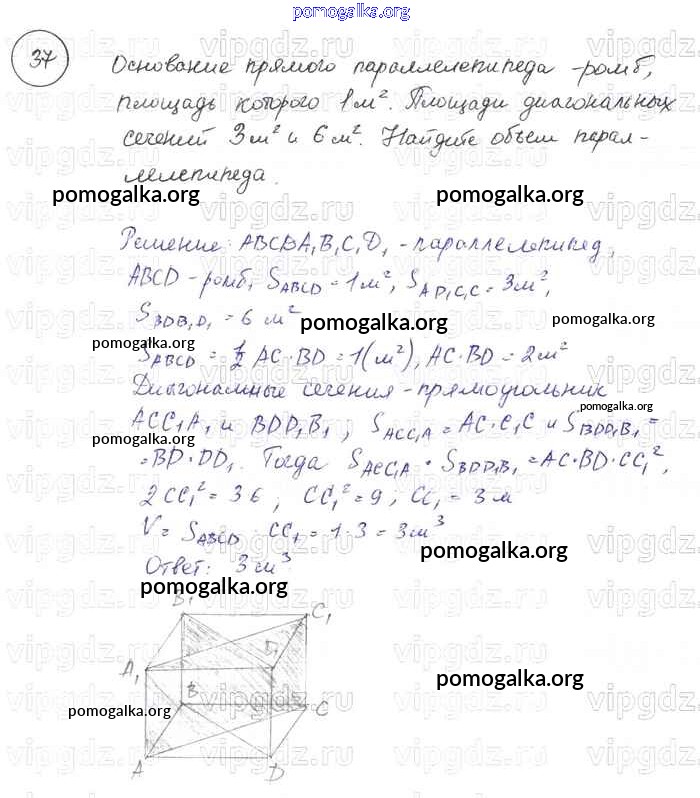 pomogalka.org
37
Основание прямого параллелепипеда -ромб,
площадь которого 1 м². Площади диагональных
сечений 3 м² и 6 м². Найдите объем парал-
лелепипеда.
pomogalka.org pomogalka.org
Решение: ABCDA₁B₁C₁D₁ - параллелепипед,
ABCD - ромб, S_ABCD = 1 м², = 3 м²,
S_BDB₁D₁ = 6 м²
pomogalka.org pomogalka.org
pomogalka.org
S_ABCD = 1/2 AC·BD = 1 (м²), AC·BD = 2 м²
Диагональные сечения - прямоугольник
pomogalka.org
ACC₁A₁ и BDD₁B₁; S_ACC₁A₁ = AC·C₁C и S_BDD₁B₁ =
pomogalka.org
= BD·DD₁. Тогда S_ACC₁A₁ · S_BDD₁B₁ = AC·BD·CC₁²,
2CC₁² = 36; CC₁² = 9; CC₁ = 3 м
V = S_ABCD · CC₁ = 1·3 = 3 м³
pomogalka.org
Ответ: 3 м³
pomogalka.org
B₁ C₁
A₁ D₁
pomogalka.org
B
pomogalka.org C
A D
vipgdz.ru